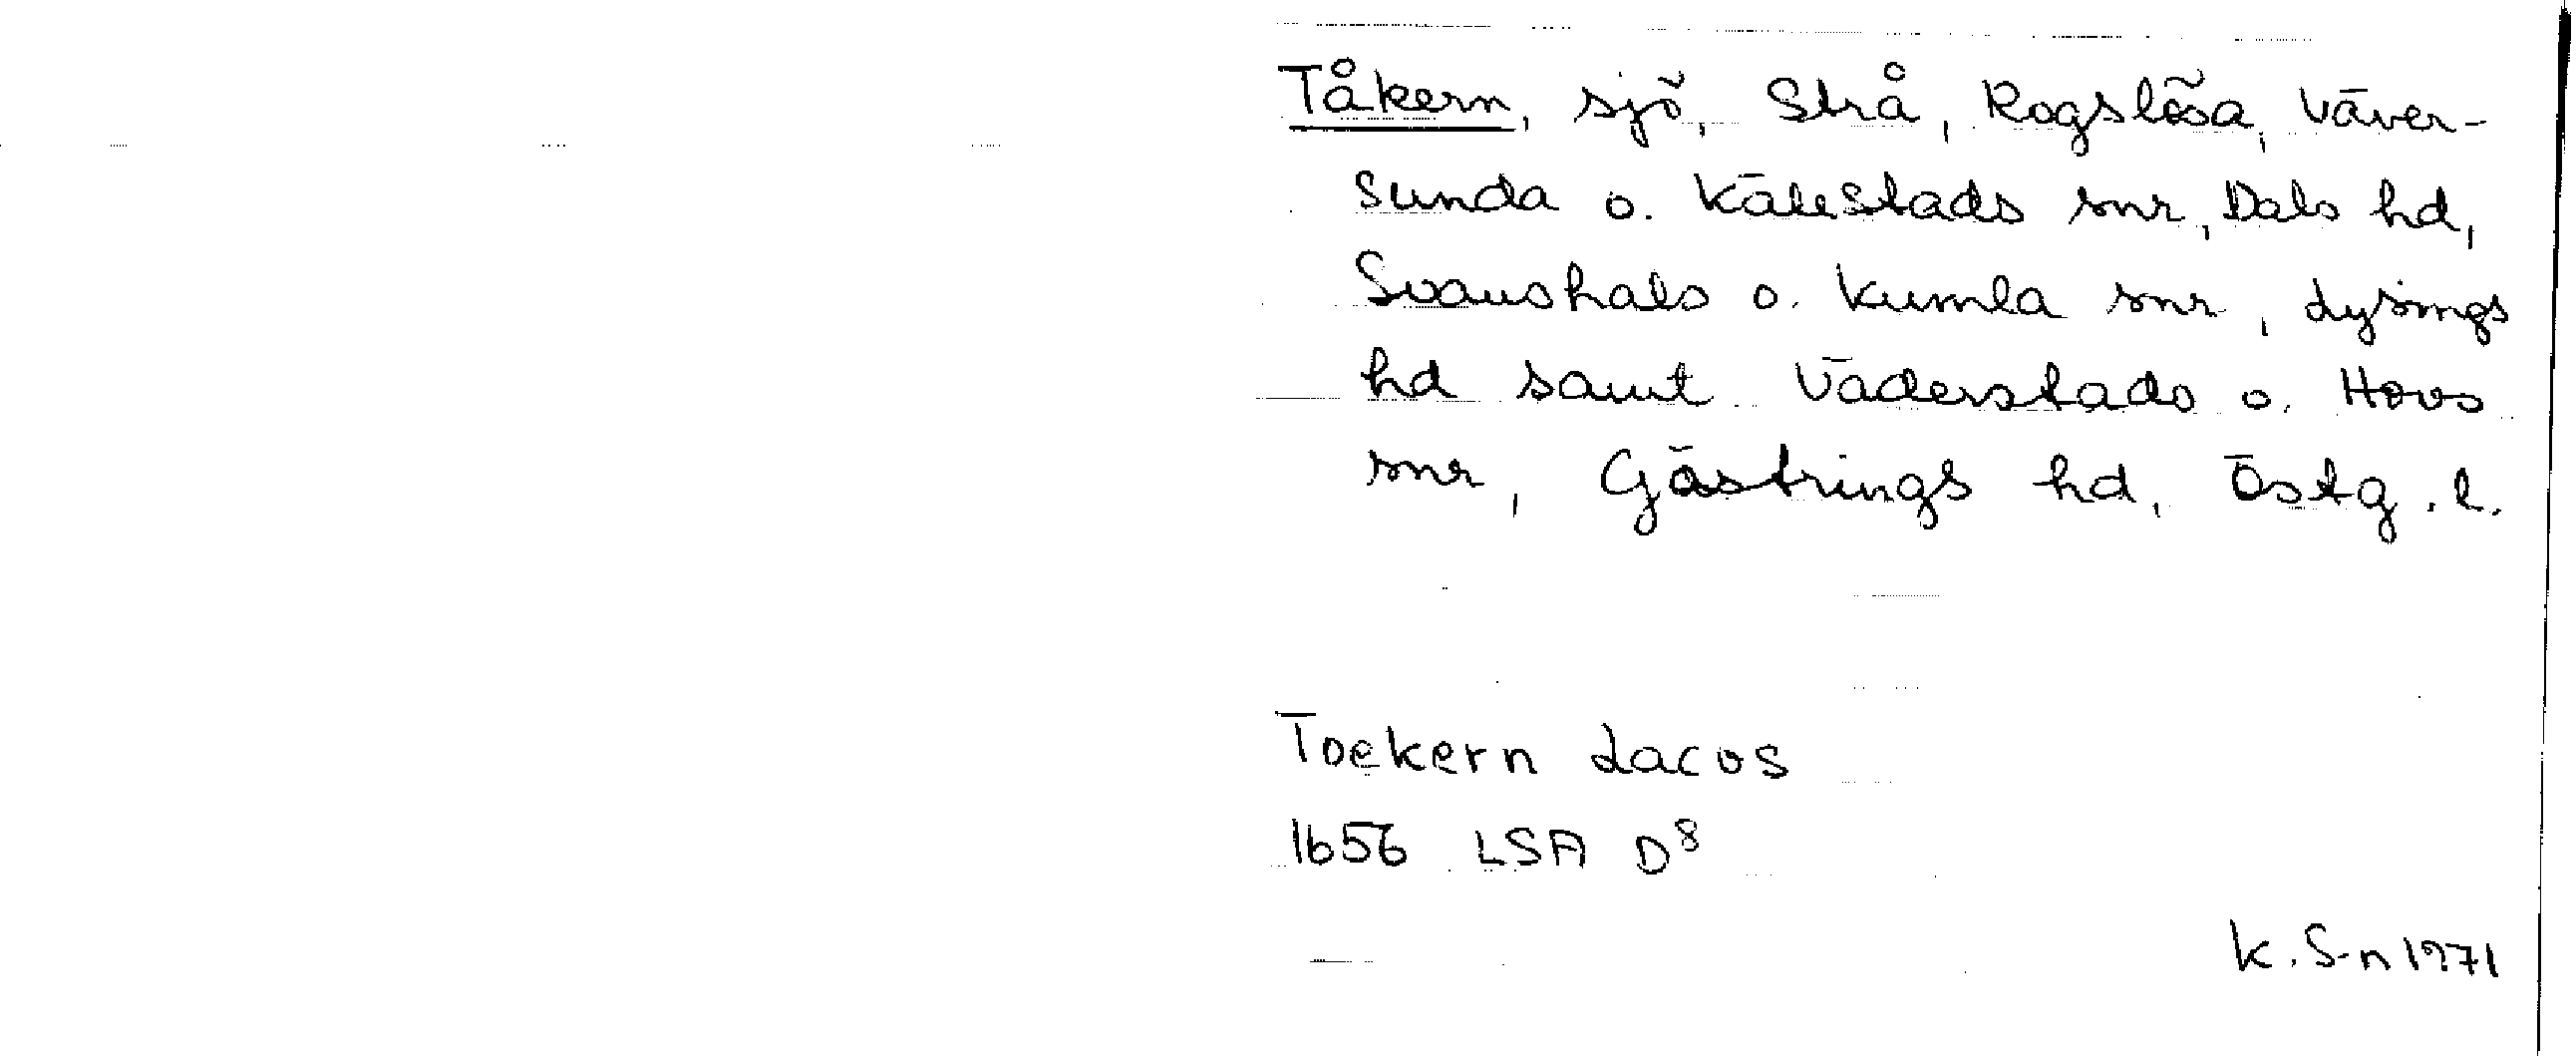 Tåkern, sjö, Strå, Rogslösa, Väver-
sunda o. Källstads snr, Dals hd,
Svanshals o. Kumla snr, Lysings
hd samt Väderstads o. Hovs
snr, Göstrings hd, Östg. l.
Toekern Lacus
1656 LSA D⁸
K. S-n 1971